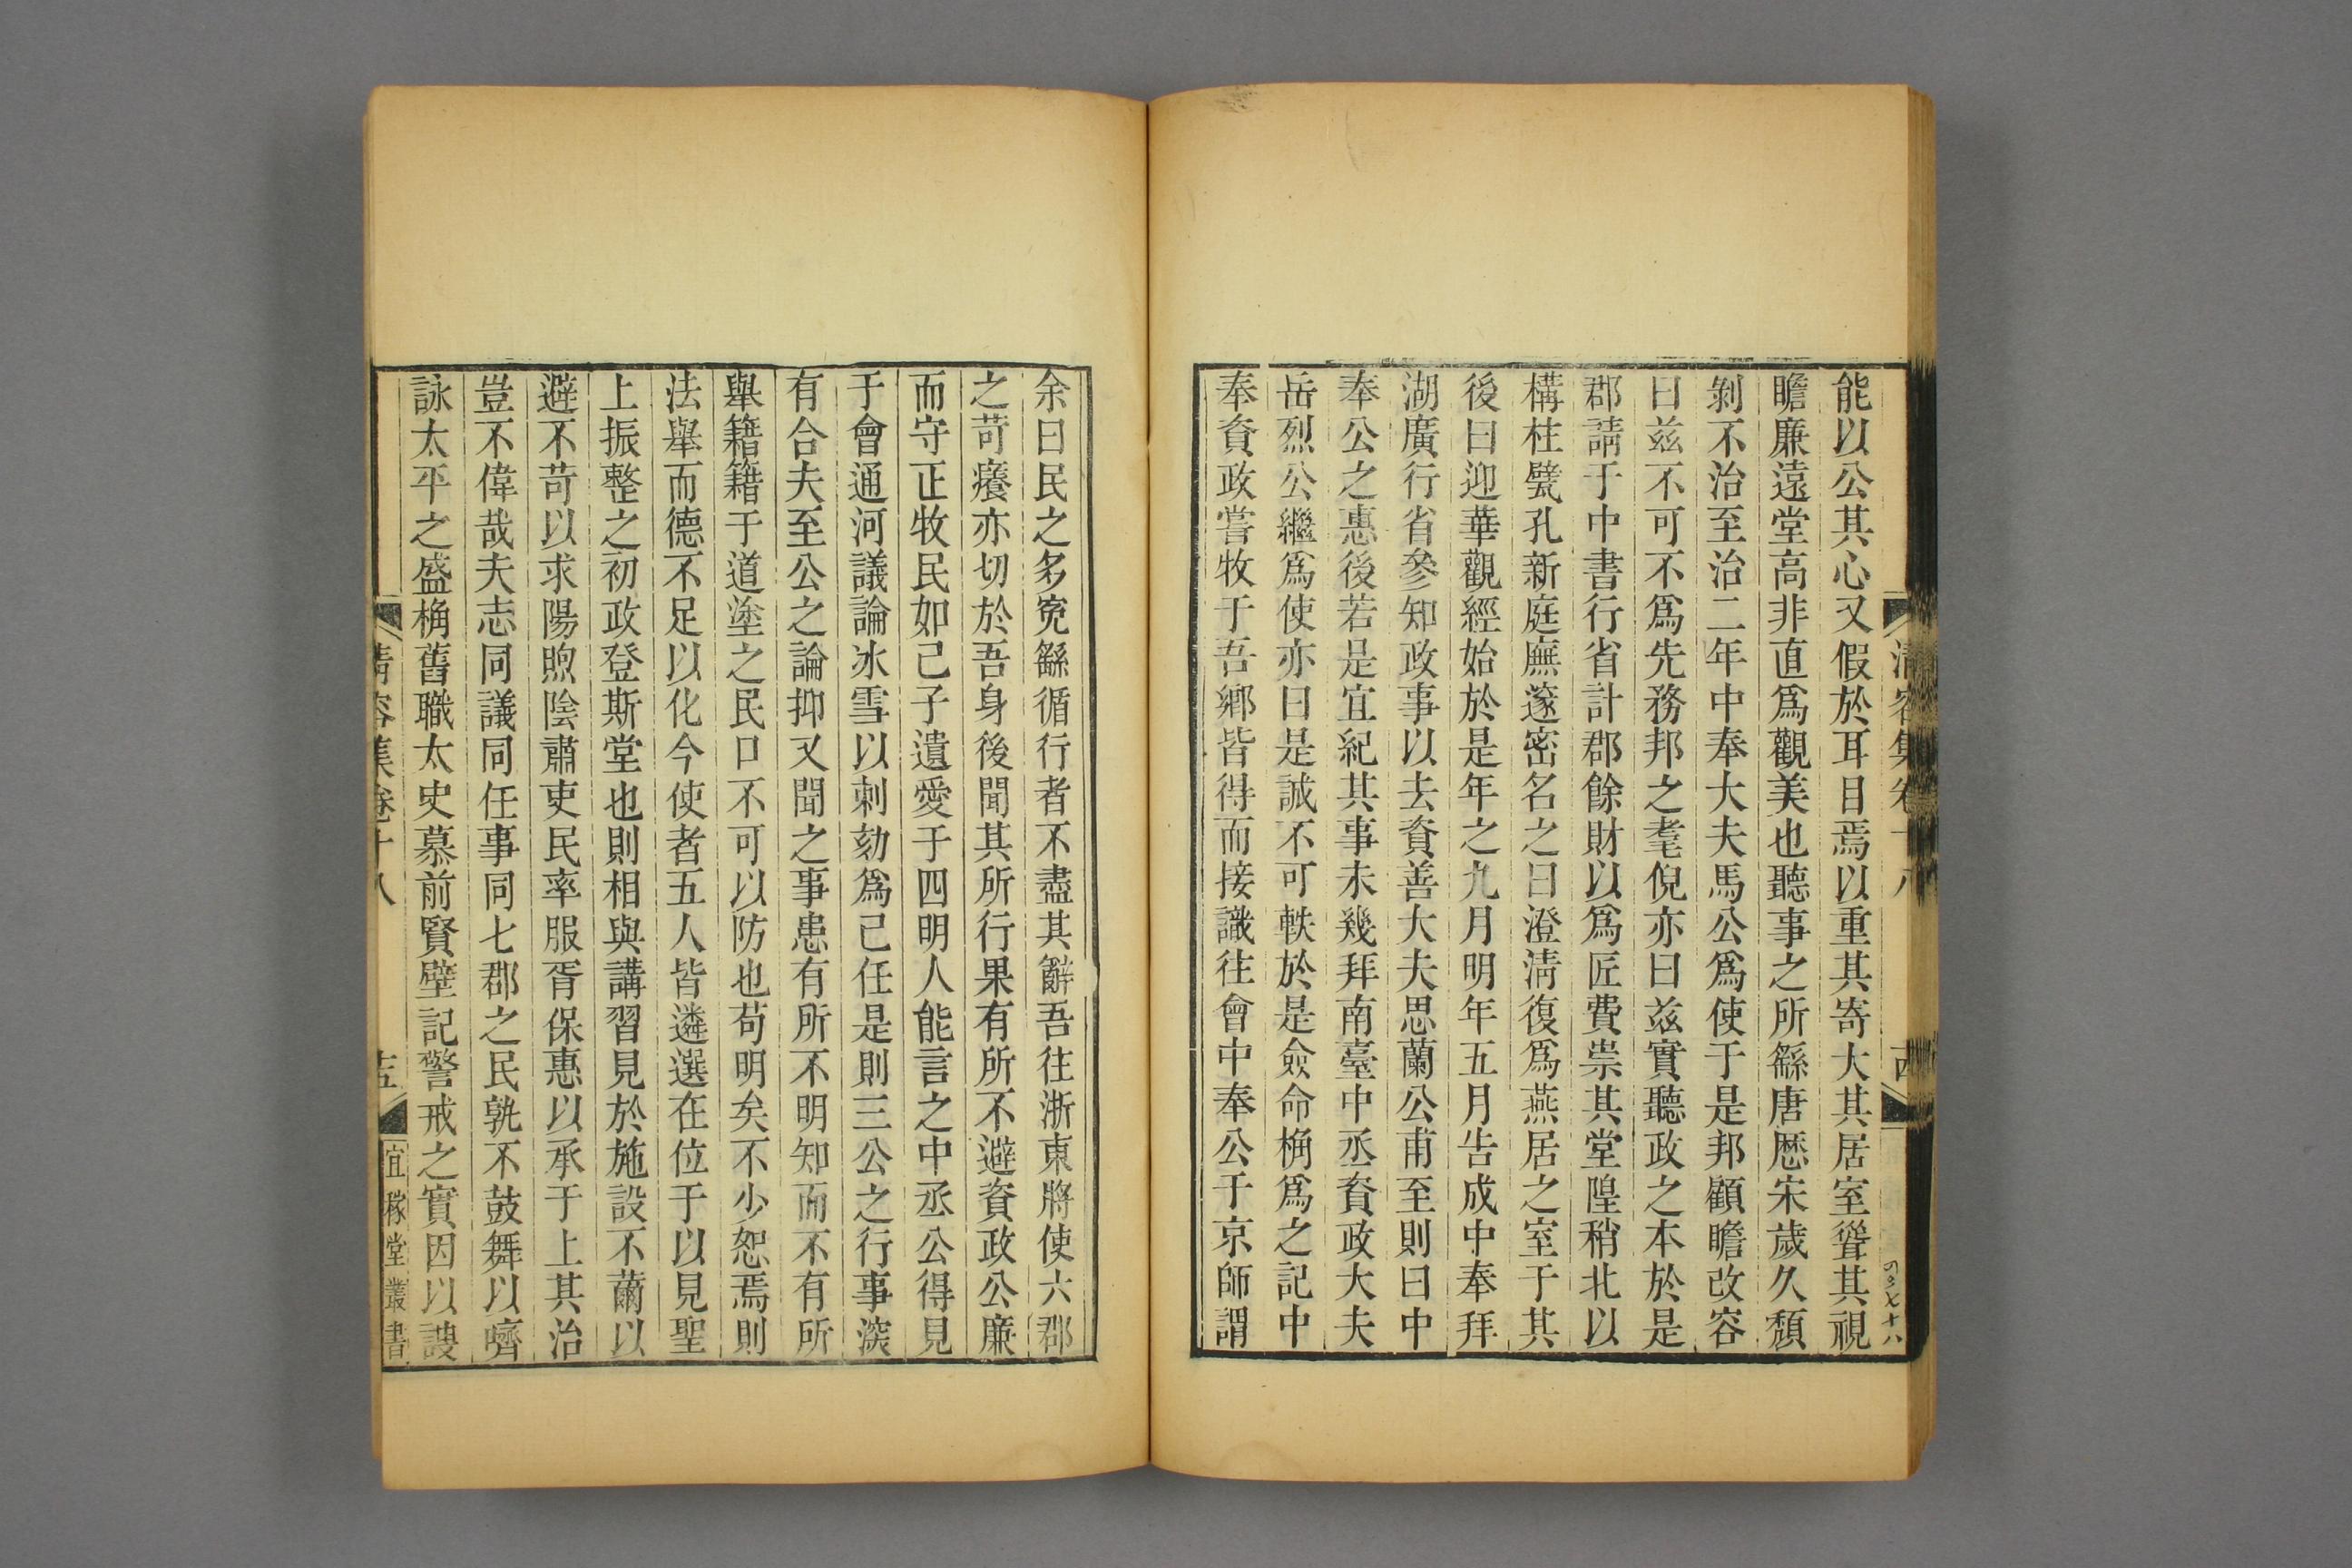 清容集卷十八
能以公其心又假於耳目焉以重其寄大其居室聳其視
瞻廉遠堂高非直爲觀美也聽事之所繇唐歷宋歲久頽
剝不治至治二年中奉大夫馬公爲使于是邦顧瞻改容
曰兹不可不爲先務邦之耄倪亦曰兹實聽政之本於是
郡請于中書行省計郡餘財以爲匠費祟其堂隍稍北以
構柱甓孔新庭廡邃密名之曰澄淸復爲燕居之室于其
後曰迎華觀經始於是年之九月明年五月告成中奉拜
湖廣行省參知政事以去資善大夫思蘭公甫至則曰中
奉公之惠後若是宜紀其事未幾拜南臺中丞資政大夫
岳烈公繼爲使亦曰是誠不可軼於是僉命桷爲之記中
奉資政嘗牧于吾鄉皆得而接識往會中奉公于京師謂
余曰民之多寃繇循行者不盡其辭吾往浙東將使六郡
之苛癢亦切於吾身後聞其所行果有所不避資政公廉
而守正牧民如己子遺愛于四明人能言之中丞公得見
于會通河議論冰雪以刺劾爲己任是則三公之行事淡
有合夫至公之論抑又聞之事患有所不明知而不有所
舉籍籍于道塗之民口不可以防也苟明矣不少恕焉則
法舉而德不足以化今使者五人皆遴選在位于以見聖
上振整之初政登斯堂也則相與講習見於施設不薾以
避不苛以求陽煦陰肅吏民率服胥保惠以承于上其治
豈不偉哉夫志同議同任事同七郡之民孰不鼓舞以嚌
詠太平之盛桷舊職太史慕前賢壁記警戒之實因以謏
清容集卷十八 十五 宜稼堂叢書